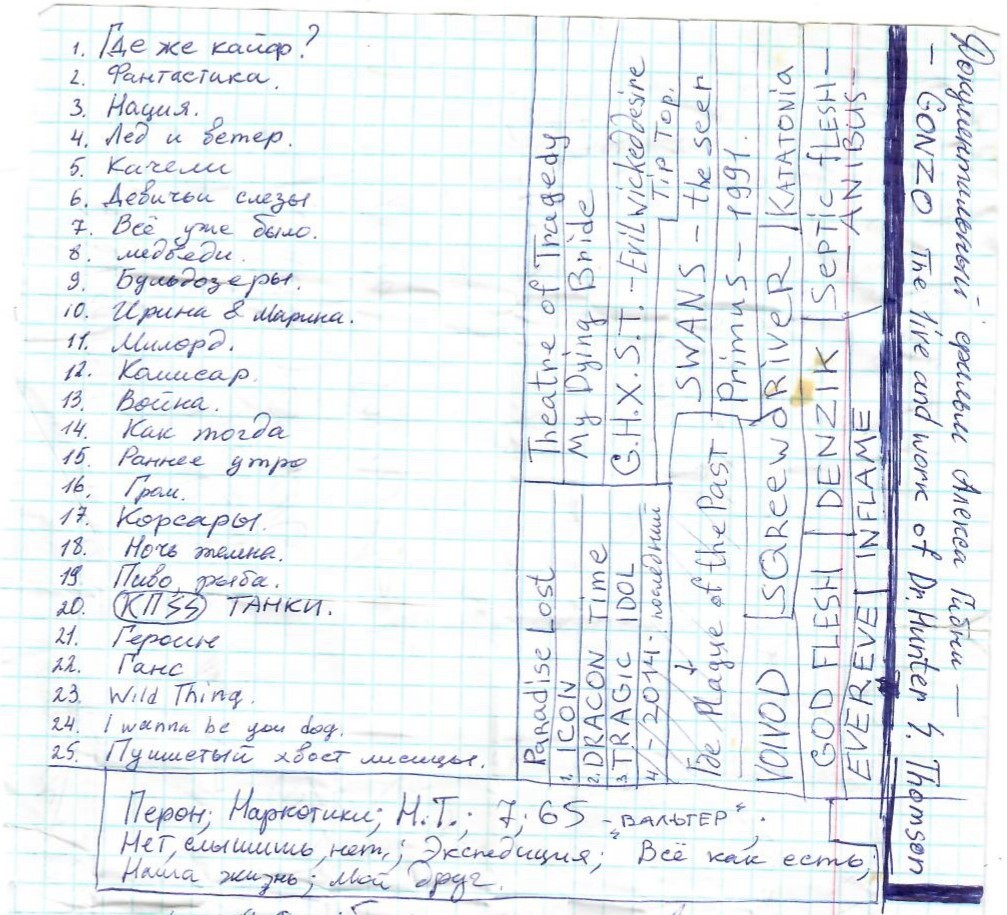 1. Где же кайф?
2. Фантастика.
3. Нация.
4. Лёд и ветер.
5. Качели
6. Девичьи слезы
7. Всё уже было.
8. медведи.
9. Бульдозеры.
10. Ирина & Марина.
11. Милорд.
12. Комисар.
13. Война.
14. Как тогда
15. Раннее утро
16. Гром.
17. Корсары.
18. Ночь темна.
19. Пиво, рыба.
20. КПSS ТАНКИ.
21. Героин
22. Ганс
23. Wild Thing.
24. I wanna be you dog.
25. Пушистый хвост лисицы.
Перон; Наркотики; Н.Т.; 7;65 - "ВАЛЬТЕР";
Нет, слышишь, нет,; Экспедиция; Всё как есть;
Наша жизнь; Мой друг.
Theatre of Tragedy
My Dying Bride
G.H.X.S.T. - Evilwickeddesire
Tip Top.
Paradise Lost
1. ICON
2. DRACON Time
3. TRAGIC IDOL
4. /-/2014: последний
↓
The Plague of the Past
SWANS - the seer
Primus - 1991.
VOIVOD | SGReewORiveR | KATATONIA
GOD FLESH | DENZIK | Septic FLESH -
EVER EVE | INFLAME - ANIBUS -
Документальный фильм Алекса Гибни -
- GONZO The live and work of Dr. Hunter S. Thomson